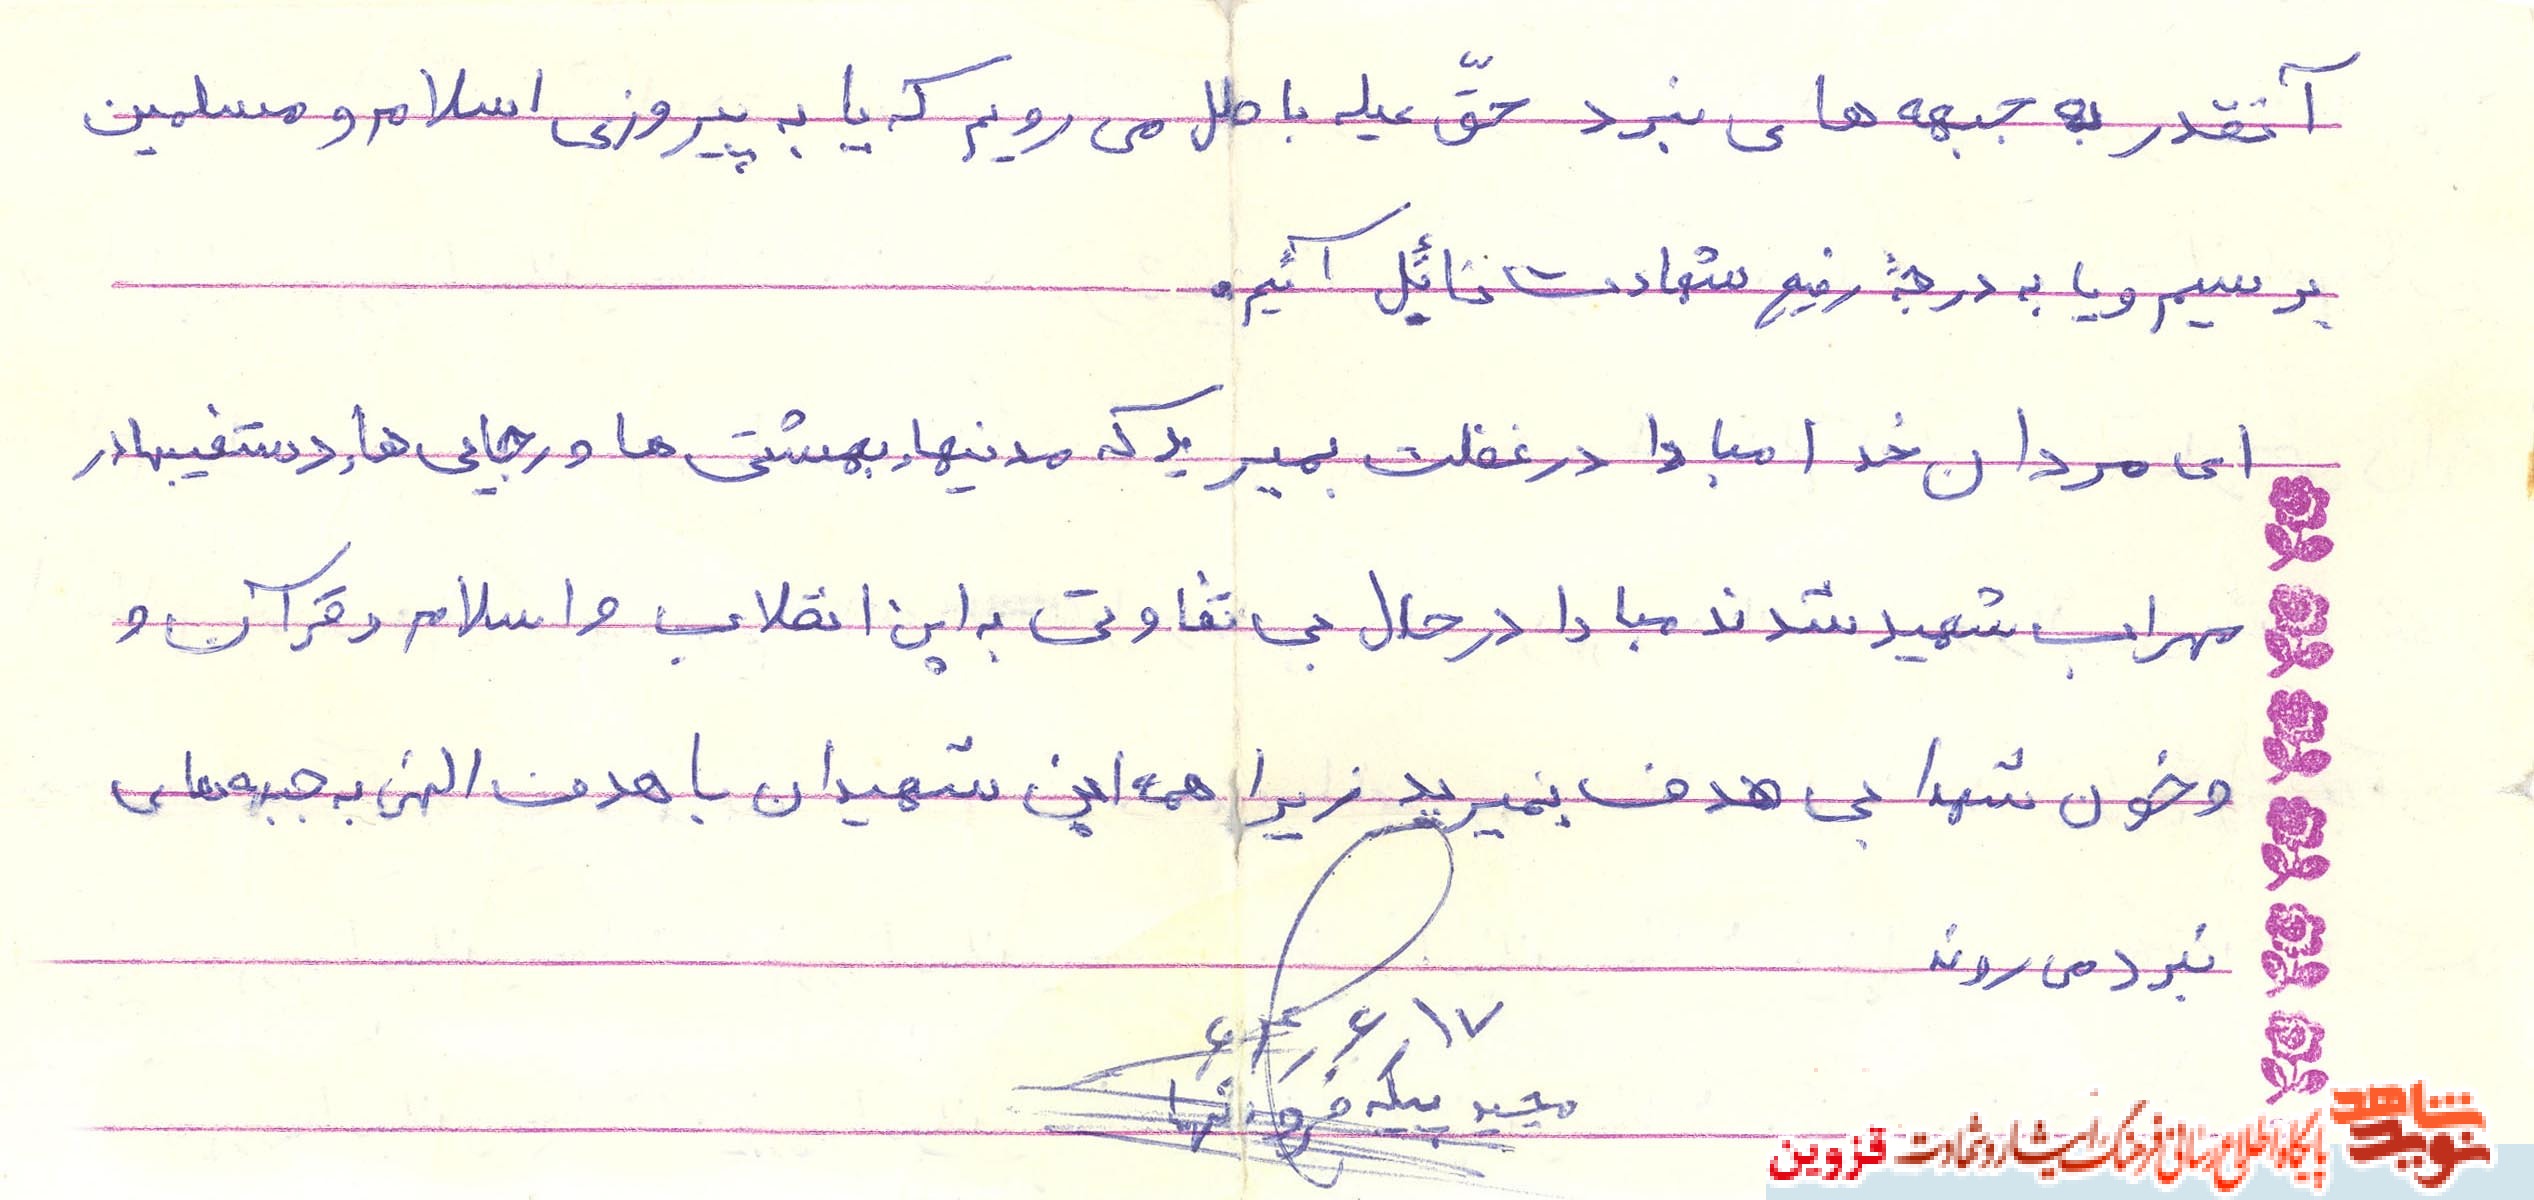 آنقدر به جبهه های نبرد حقّ علیه باطل می رویم که یا به پیروزی اسلام و مسلمین
برسیم و یا به درجهٔ رفیع شهادت نائل آئیم.
ای مردان خدا مبادا در غفلت بمیرید که مدنیها، بهشتی ها و رجایی ها، دستغیبها در
مهراب شهید شدند مبادا در حال بی تفاوتی به این انقلاب و اسلام و قرآن و
و خون شهدا بی هدف بمیرید زیرا همه این شهیدان با هدف الهی به جبهه های
نبرد می روند
۱۷ر۶ر۶۲
مجید
شاهد
نوید
پایگاه اطلاع رسانی فرهنگ ایثار و شهادت قزوین